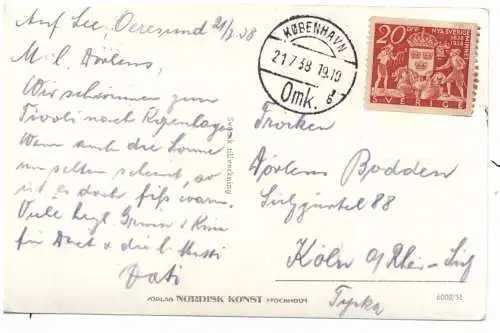 Auf See, Oeresund 21/7.38
M. l. Dörlens,
Wir schwimmen zum
Tivoli nach Kopenhagen
Wenn auch die Sonne
nur selten scheint, so
ist es doch süß warm.
Viele herzl.
für Dich + die l. Mutti
Vati
Svensk tillverkning
KØBENHAVN
21.7.38 19.10
Omk. 8
20 ÖRE NYA SVERIGE-MINNE
1638 1938
SVERIGE
Dörlens Bodden
Sülzgürtel 88
Köln a/Rhein-Sülz
Tyska
FÖRLAG NORDISK KONST STOCKHOLM
6009/35